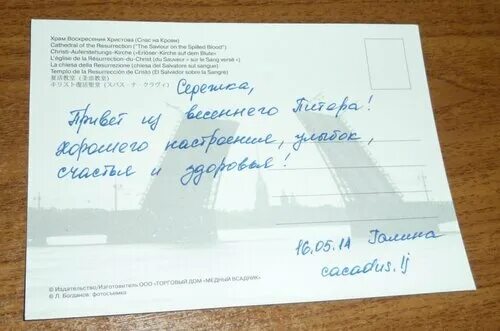 Храм Воскресения Христова (Спас на Крови)
Cathedral of the Resurrection ("The Saviour on the Spilled Blood")
Christi-Auferstehungs-Kirche («Erlöser-Kirche auf dem Blute»)
L'église de la Résurrection-du-Christ (du Sauveur « sur le Sang versé »)
La chiesa della Resurrezione (chiesa del Salvatore sul sangue)
Templo de la Resurrección de Cristo (El Salvador sobre la Sangre)
キリスト復活聖堂（スパス ナ クラヴィ）
Сережка,
Привет из весеннего Питера!
Хорошего настроения, улыбок,
счастья и здоровья!
16.05.14 Галина
cacadus.lj
© Издательство/Изготовитель ООО «ТОРГОВЫЙ ДОМ «МЕДНЫЙ ВСАДНИК»
© Л. Богданов: фотосъемка